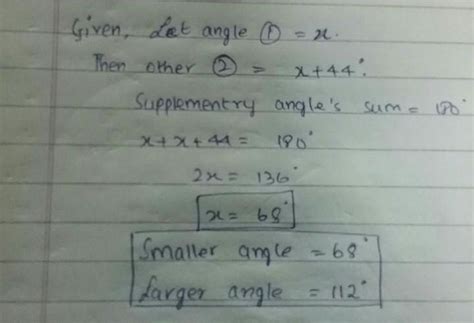 Given, Let angle ① = x.
Then other ② = x+44°.
Supplementry angle's sum = 180°
x+x+44 = 180°
2x = 136°
x = 68°
Smaller angle = 68°
Larger angle = 112°